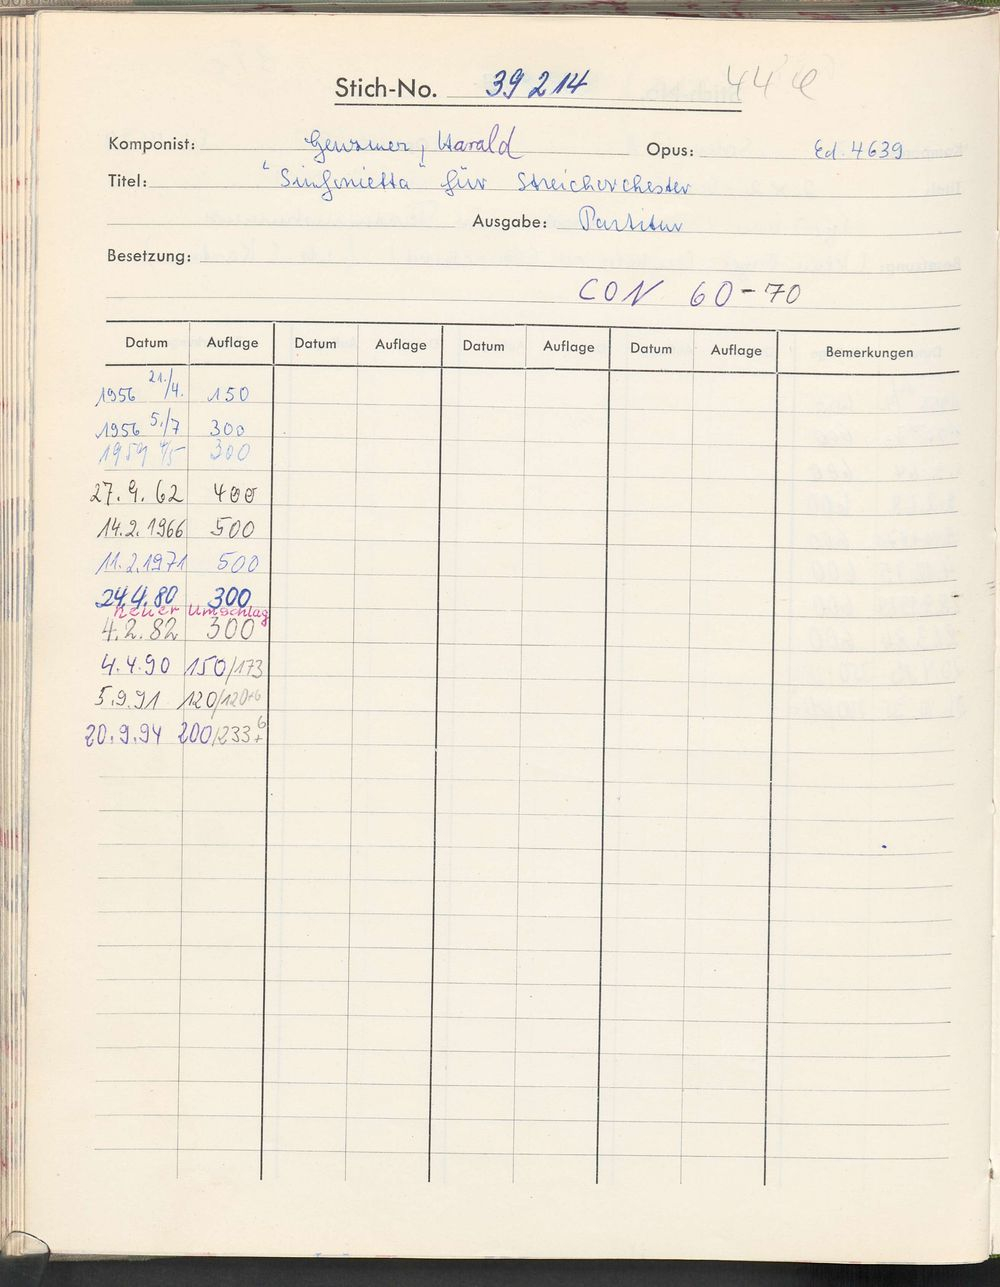 Stich-No. 39 214 44 @
Komponist: Genzmer, Harald Opus: Ed. 4639
Titel: "Sinfonietta" für Streichorchester
Ausgabe: Partitur
Besetzung:
CON 60-70
Datum Auflage Datum Auflage Datum Auflage Datum Auflage Bemerkungen
1956 21./4. 150
1956 5./7 300
1959 4/5 300
27.9.62 400
14.2.1966 500
11.2.1971 500
24.4.80 300
neuer Umschlag
4.2.82 300
4.4.90 150/173
5.9.91 120/120+6
20.9.94 200/233+6